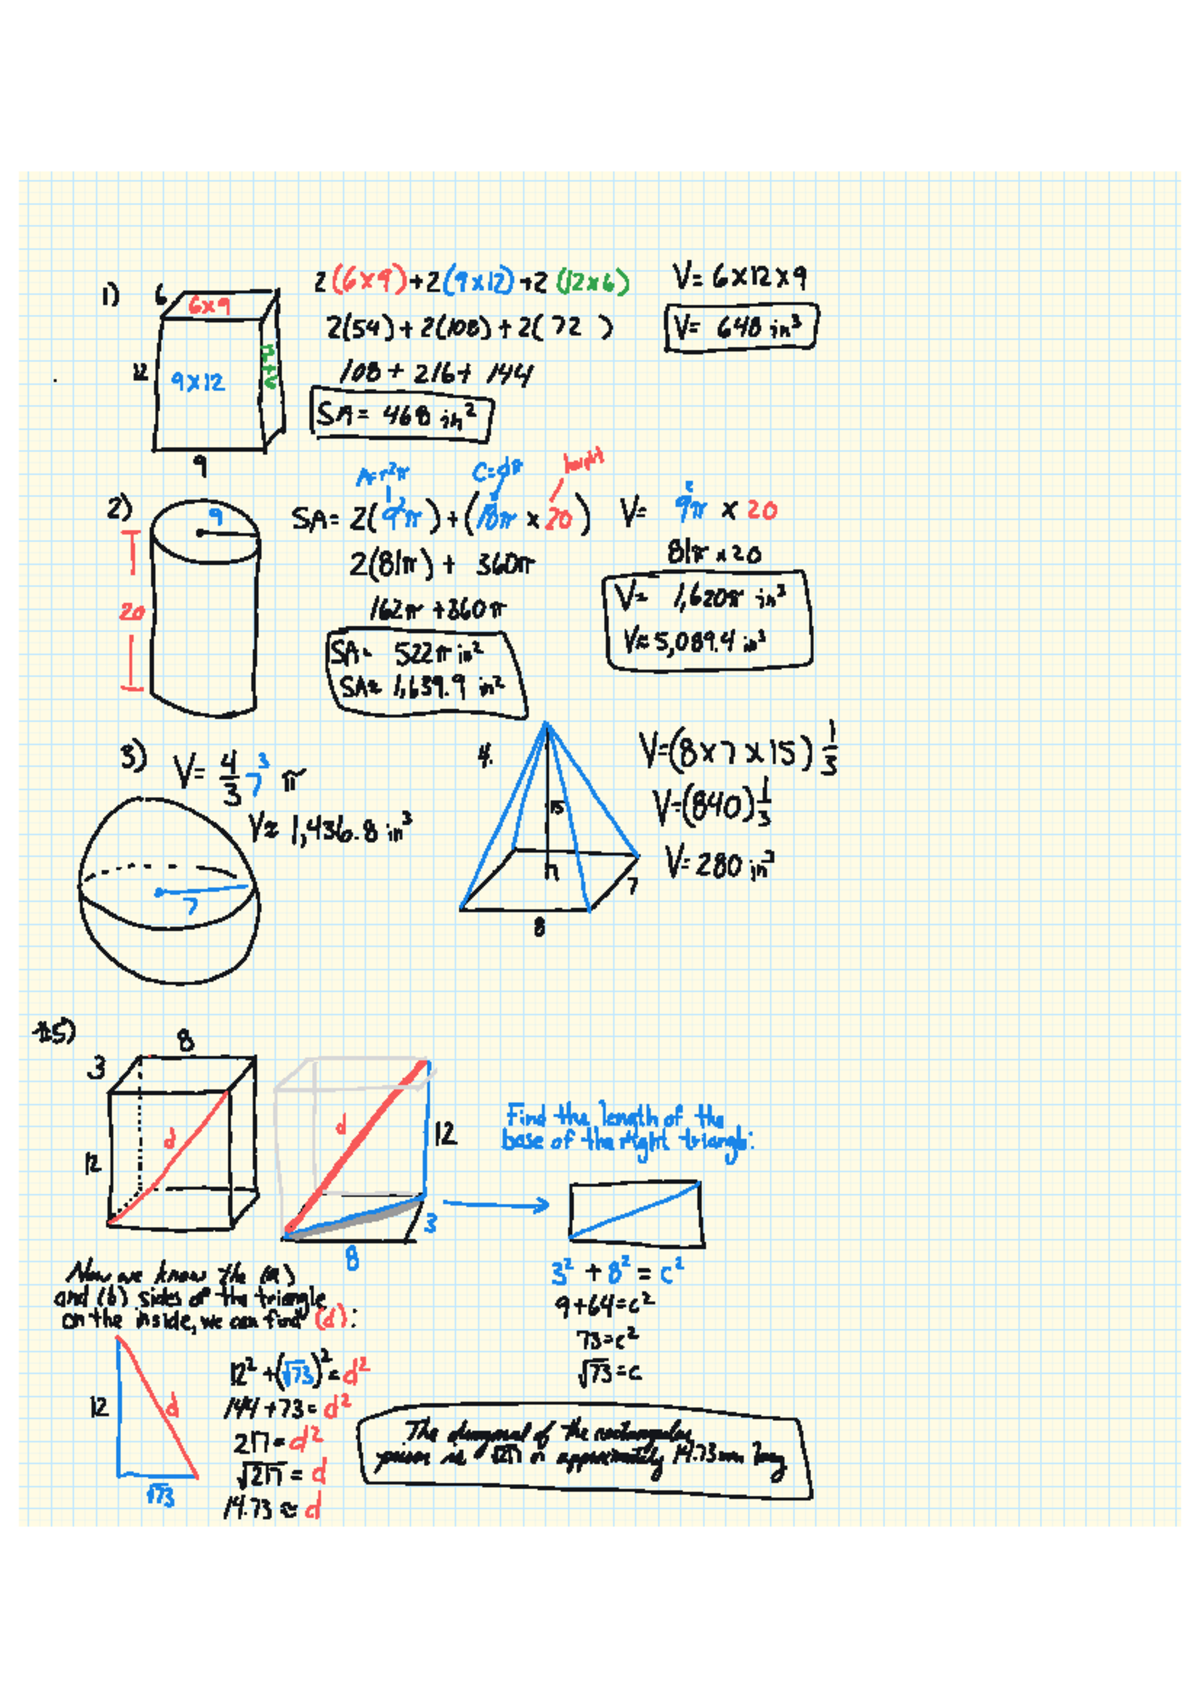 1)
6
6x9
12
9x12
12x6
9
2(6x9)+2(9x12)+2(12x6)
2(54)+2(108)+2(72 )
108+216+144
SA= 468 in²
V=6x12x9
V= 648 in³
2)
9
20
A=r²π
C=dπ
height
SA= 2(9²π)+(18π x 20)
2(81π)+ 360π
162π+360π
SA= 522π in²
SA≈ 1,639.9 in²
V= 9²π x 20
81π x 20
V= 1,620π in³
V≈ 5,089.4 in³
3)
V= 4/3 7³ π
V≈ 1,436.8 in³
7
4.
15
7
8
V=(8x7x15) 1/3
V=(840) 1/3
V= 280 in³
#5)
8
3
d
12
d
12
3
8
Find the length of the
base of the right triangle:
3² + 8² = c²
9+64=c²
73=c²
√73=c
Now we know the (a)
and (b) sides of the triangle
on the inside, we can find (d):
12
d
√73
12²+(√73)²=d²
144+73=d²
217=d²
√217=d
14.73≈d
The diagonal of the rectangular
prism is √217 or approximately 14.73 mm long